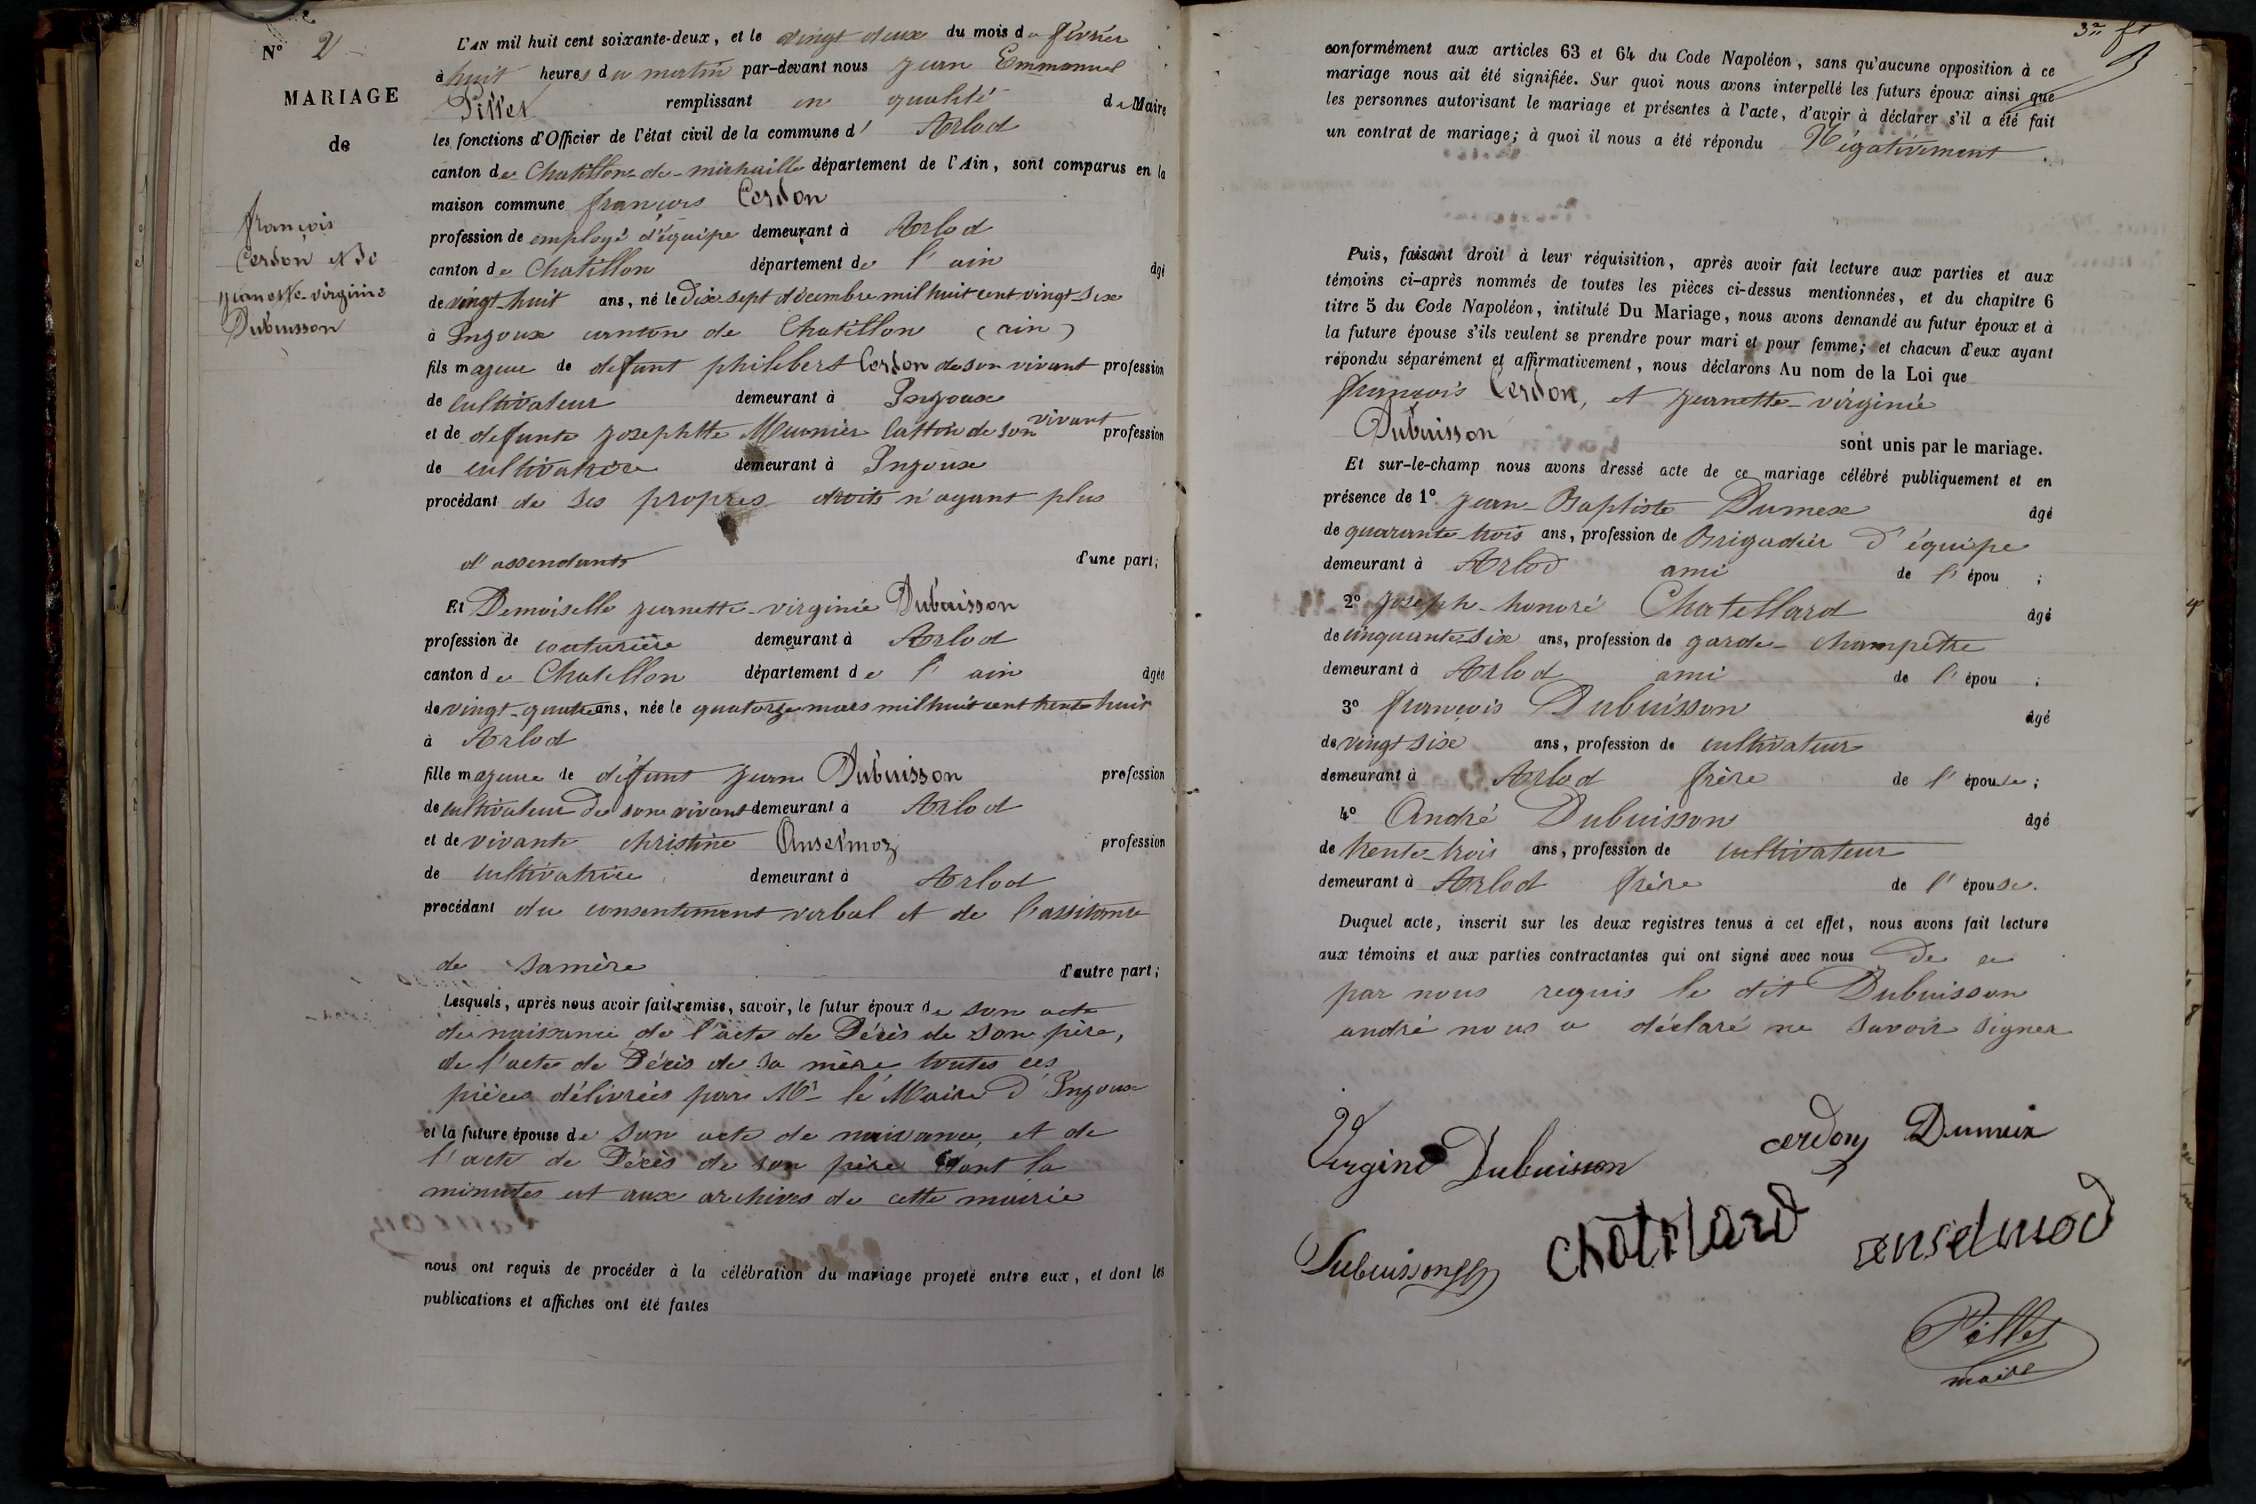 N° 2
MARIAGE
de
françois
Cerdon et Dlle
jeanette-virginie
Dubuisson
L'AN mil huit cent soixante-deux, et le vingt deux du mois de février
à huit heures du matin par-devant nous jean Emmanuel
Pillet remplissant en qualité de Maire
les fonctions d'Officier de l'état civil de la commune d' Arlod
canton de Chatillon-de-michaille département de l'Ain, sont comparus en la
maison commune françois Cerdon
profession de employé d'équipe demeurant à Arlod
canton de Chatillon département de l'ain âgé
de vingt-huit ans, né le Dix sept décembre mil huit cent vingt-six
à Injoux canton de Chatillon (ain)
fils majeur de defunt philibert Cerdon de son vivant profession
de cultivateur demeurant à Injoux
et de defunte josephtte Meunier Catton de son vivant profession
de cultivatrice demeurant à Injoux
procédant de ses propres droits n'ayant plus
d'assendants d'une part;
Et Demoiselle jeanette-virginie Dubuisson
profession de couturière demeurant à Arlod
canton de Chatillon département de l'ain âgée
de vingt-quatre ans, née le quatorze mars mil huit cent trente huit
à Arlod
fille majeure de défunt jean Dubuisson profession
de cultivateur de son vivant demeurant à Arlod
et de vivante christine Anselmoz profession
de cultivatrice demeurant à Arlod
procédant du consentement verbal et de l'assistance
de sa mère d'autre part;
Lesquels, après nous avoir fait remise, savoir, le futur époux de son acte
de naissance de l'acte de Décès de son père,
de l'acte de Décès de sa mère toutes ces
pièces délivrées par Mr le Maire d'Injoux
et la future épouse de son acte de naissance, et de
l'acte de Décès de son père dont la
minutes est aux archives de cette mairie
nous ont requis de procéder à la célébration du mariage projeté entre eux, et dont les
publications et affiches ont été faites
3me ft
conformément aux articles 63 et 64 du Code Napoléon, sans qu'aucune opposition à ce
mariage nous ait été signifiée. Sur quoi nous avons interpellé les futurs époux ainsi que
les personnes autorisant le mariage et présentes à l'acte, d'avoir à déclarer s'il a été fait
un contrat de mariage; à quoi il nous a été répondu Négativement.
Puis, faisant droit à leur réquisition, après avoir fait lecture aux parties et aux
témoins ci-après nommés de toutes les pièces ci-dessus mentionnées, et du chapitre 6
titre 5 du Code Napoléon, intitulé Du Mariage, nous avons demandé au futur époux et à
la future épouse s'ils veulent se prendre pour mari et pour femme; et chacun d'eux ayant
répondu séparément et affirmativement, nous déclarons Au nom de la Loi que
françois Cerdon, et jeanette-virginie
Dubuisson sont unis par le mariage.
Et sur-le-champ nous avons dressé acte de ce mariage célébré publiquement et en
présence de 1° jean-Baptiste Dumex âgé
de quarante-trois ans, profession de Brigadier d'équipe
demeurant à Arlod ami de l'épou ;
2° joseph-honoré Chatellard âgé
de cinquante-six ans, profession de garde-champêtre
demeurant à Arlod ami de l'épou ;
3° françois Dubuisson âgé
de vingt six ans, profession de cultivateur
demeurant à Arlod frère de l'épouse;
4° André Dubuisson âgé
de trente-trois ans, profession de cultivateur
demeurant à Arlod frère de l'épouse.
Duquel acte, inscrit sur les deux registres tenus à cet effet, nous avons fait lecture
aux témoins et aux parties contractantes qui ont signé avec nous De ce
par nous requis le dit Dubuisson
andré nous a déclaré ne savoir signer
Virginie Dubuisson cerdon Dumeix
Dubuisson chatelard anselmod
Pillet
maire